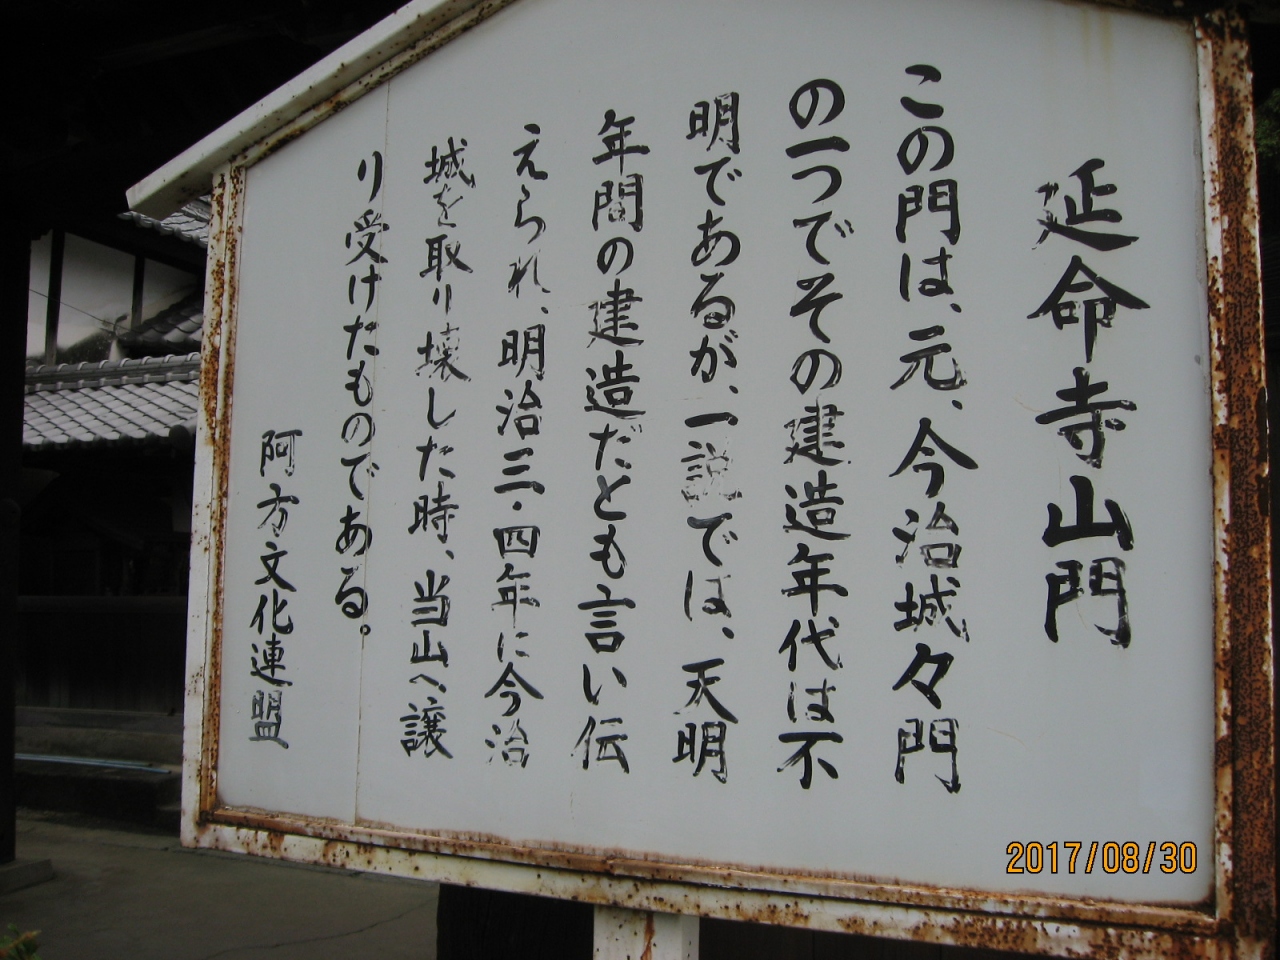 延命寺山門
この門は、元、今治城々門
の一つでその建造年代は不
明であるが、一説では、天明
年間の建造だとも言い伝
えられ、明治三・四年に今治
城を取り壊した時、当山へ譲
り受けたものである。
阿方文化連盟
2017/08/30